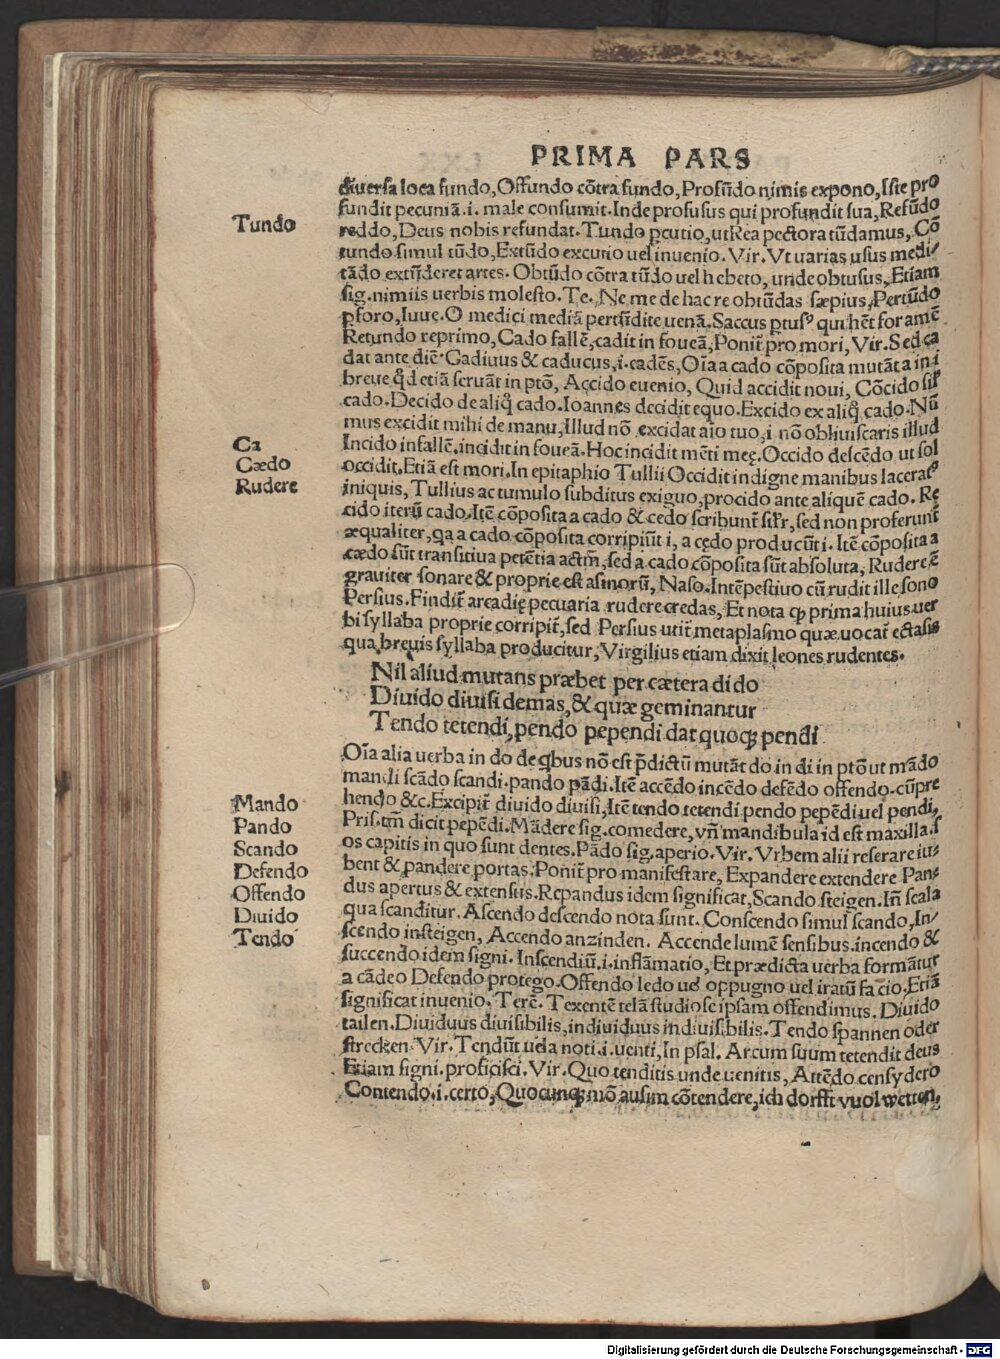 PRIMA PARS
diuersa loca fundo, Offundo cōtra fundo, Profūdo nimis expono, Iste pro
fundit pecuniā.i. male consumit. Inde profusus qui profundit sua, Refūdo
Tundo
reddo, Deus nobis refundat. Tundo pcutio, ut Rea pectora tūdamus, Cō
tundo simul tūdo, Extūdo excutio uel inuenio. Vir. Vt uarias usus medi/
tādo extūderet artes. Obtūdo cōtra tūdo uel hebeto, unde obtusus, Etiam
sig. nimiis uerbis molesto. Te. Ne me de hac re obtūdas sæpius, Pertūdo
pforo, Iuue. O medici mediā pertūdite uenā. Saccus ptusꝰ qui hēt foramē
Retundo reprimo, Cado fallē, cadit in foueā, Ponit̄ pro mori, Vir. Sed ca
dat ante diē. Cadiuus & caducus, i. cadēs, Oīa a cado cōposita mutāt a in i
breue qd etiā seruāt in ptō, Accido euenio, Quid accidit noui, Cōcido sil̄
cado. Decido de aliq̄ cado. Ioannes decidit equo. Excido ex aliq̄ cado. Nū
mus excidit mihi de manu, Illud nō excidat aīo tuo, i nō obliuiscaris illud
Ca
Incido infallē, incidit in foueā. Hoc incidit mēti meę. Occido descēdo ut sol
Cædo
occidit. Etiā est mori. In epitaphio Tullii Occidit indigne manibus laceratꝰ
Rudere
iniquis, Tullius ac tumulo subditus exiguo, procido ante aliquē cado. Re
cido iterū cado. Itē cōposita a cado & cedo scribunt̄ sil̄r, sed non proferunt̄
æqualiter, qa a cado cōposita corripiūt i, a cędo producūt i. Itē cōposita a
cædo sūt transitiua petētia actm̄, sed a cado cōposita sūt absoluta, Rudere ē
grauiter sonare & proprie est asinorū, Naso. Intēpestiuo cū rudit ille sono
Persius. Findit̄ arcadię pecuaria rudere credas, Et nota ꝙ prima huius uer
bi syllaba proprie corripit̄, sed Persius utit̄ metaplasmo quæ uocat̄ ectasis
qua breuis syllaba producitur, Virgilius etiam dixit leones rudentes.
Nil aliud mutans præbet per cætera di do
Diuido diuisi demas, & quæ geminantur
Tendo tetendi, pendo pependi dat quoqꝫ pendi
Oīa alia uerba in do de qbus nō est p̄dictū mutāt do in di in ptō ut mādo
mandi scādo scandi. pando pādi. Itē accēdo incēdo defēdo offendo. cūpre
Mando
hendo &c. Excipit̄ diuido diuisi, Itē tendo tetendi pendo pepēdi uel pendi,
Pando
Pris. tm̄ dicit pepēdi. Mādere sig. comedere, vn̄ mandibula id est maxilla.s
Scando
os capitis in quo sunt dentes. Pādo sig. aperio. Vir. Vrbem alii reserare iu/
Defendo
bent & pandere portas. Ponit̄ pro manifestare, Expandere extendere Pan/
Offendo
dus apertus & extensus. Repandus idem significat, Scando steigen. In̄ scala
Diuido
qua scanditur. Ascendo descendo nota sunt. Conscendo simul scando, In/
Tendo
scendo insteigen, Accendo anzinden. Accende lumē sensibus. incendo &
succendo idem signi. Inscendiū.i. inflāmatio, Et prædicta uerba formātur
a cādeo Defendo protego. Offendo ledo uel oppugno uel iratū facio, Etiā
significat inuenio. Terē. Texentē telā studiose ipsam offendimus. Diuido
tailen. Diuiduus diuisibilis, indiuiduus indiuisibilis. Tendo spannen oder
strecken. Vir. Tendūt uela noti.i. uenti, In psal. Arcum suum tetendit deus
Etiam signi. proficisci. Vir. Quo tenditis unde uenitis, Attēdo censydero
Contendo.i. certo, Quocunqꝫ mō ausim cōtendere, ich dorfft vuol wetten,
Digitalisierung gefördert durch die Deutsche Forschungsgemeinschaft - DFG